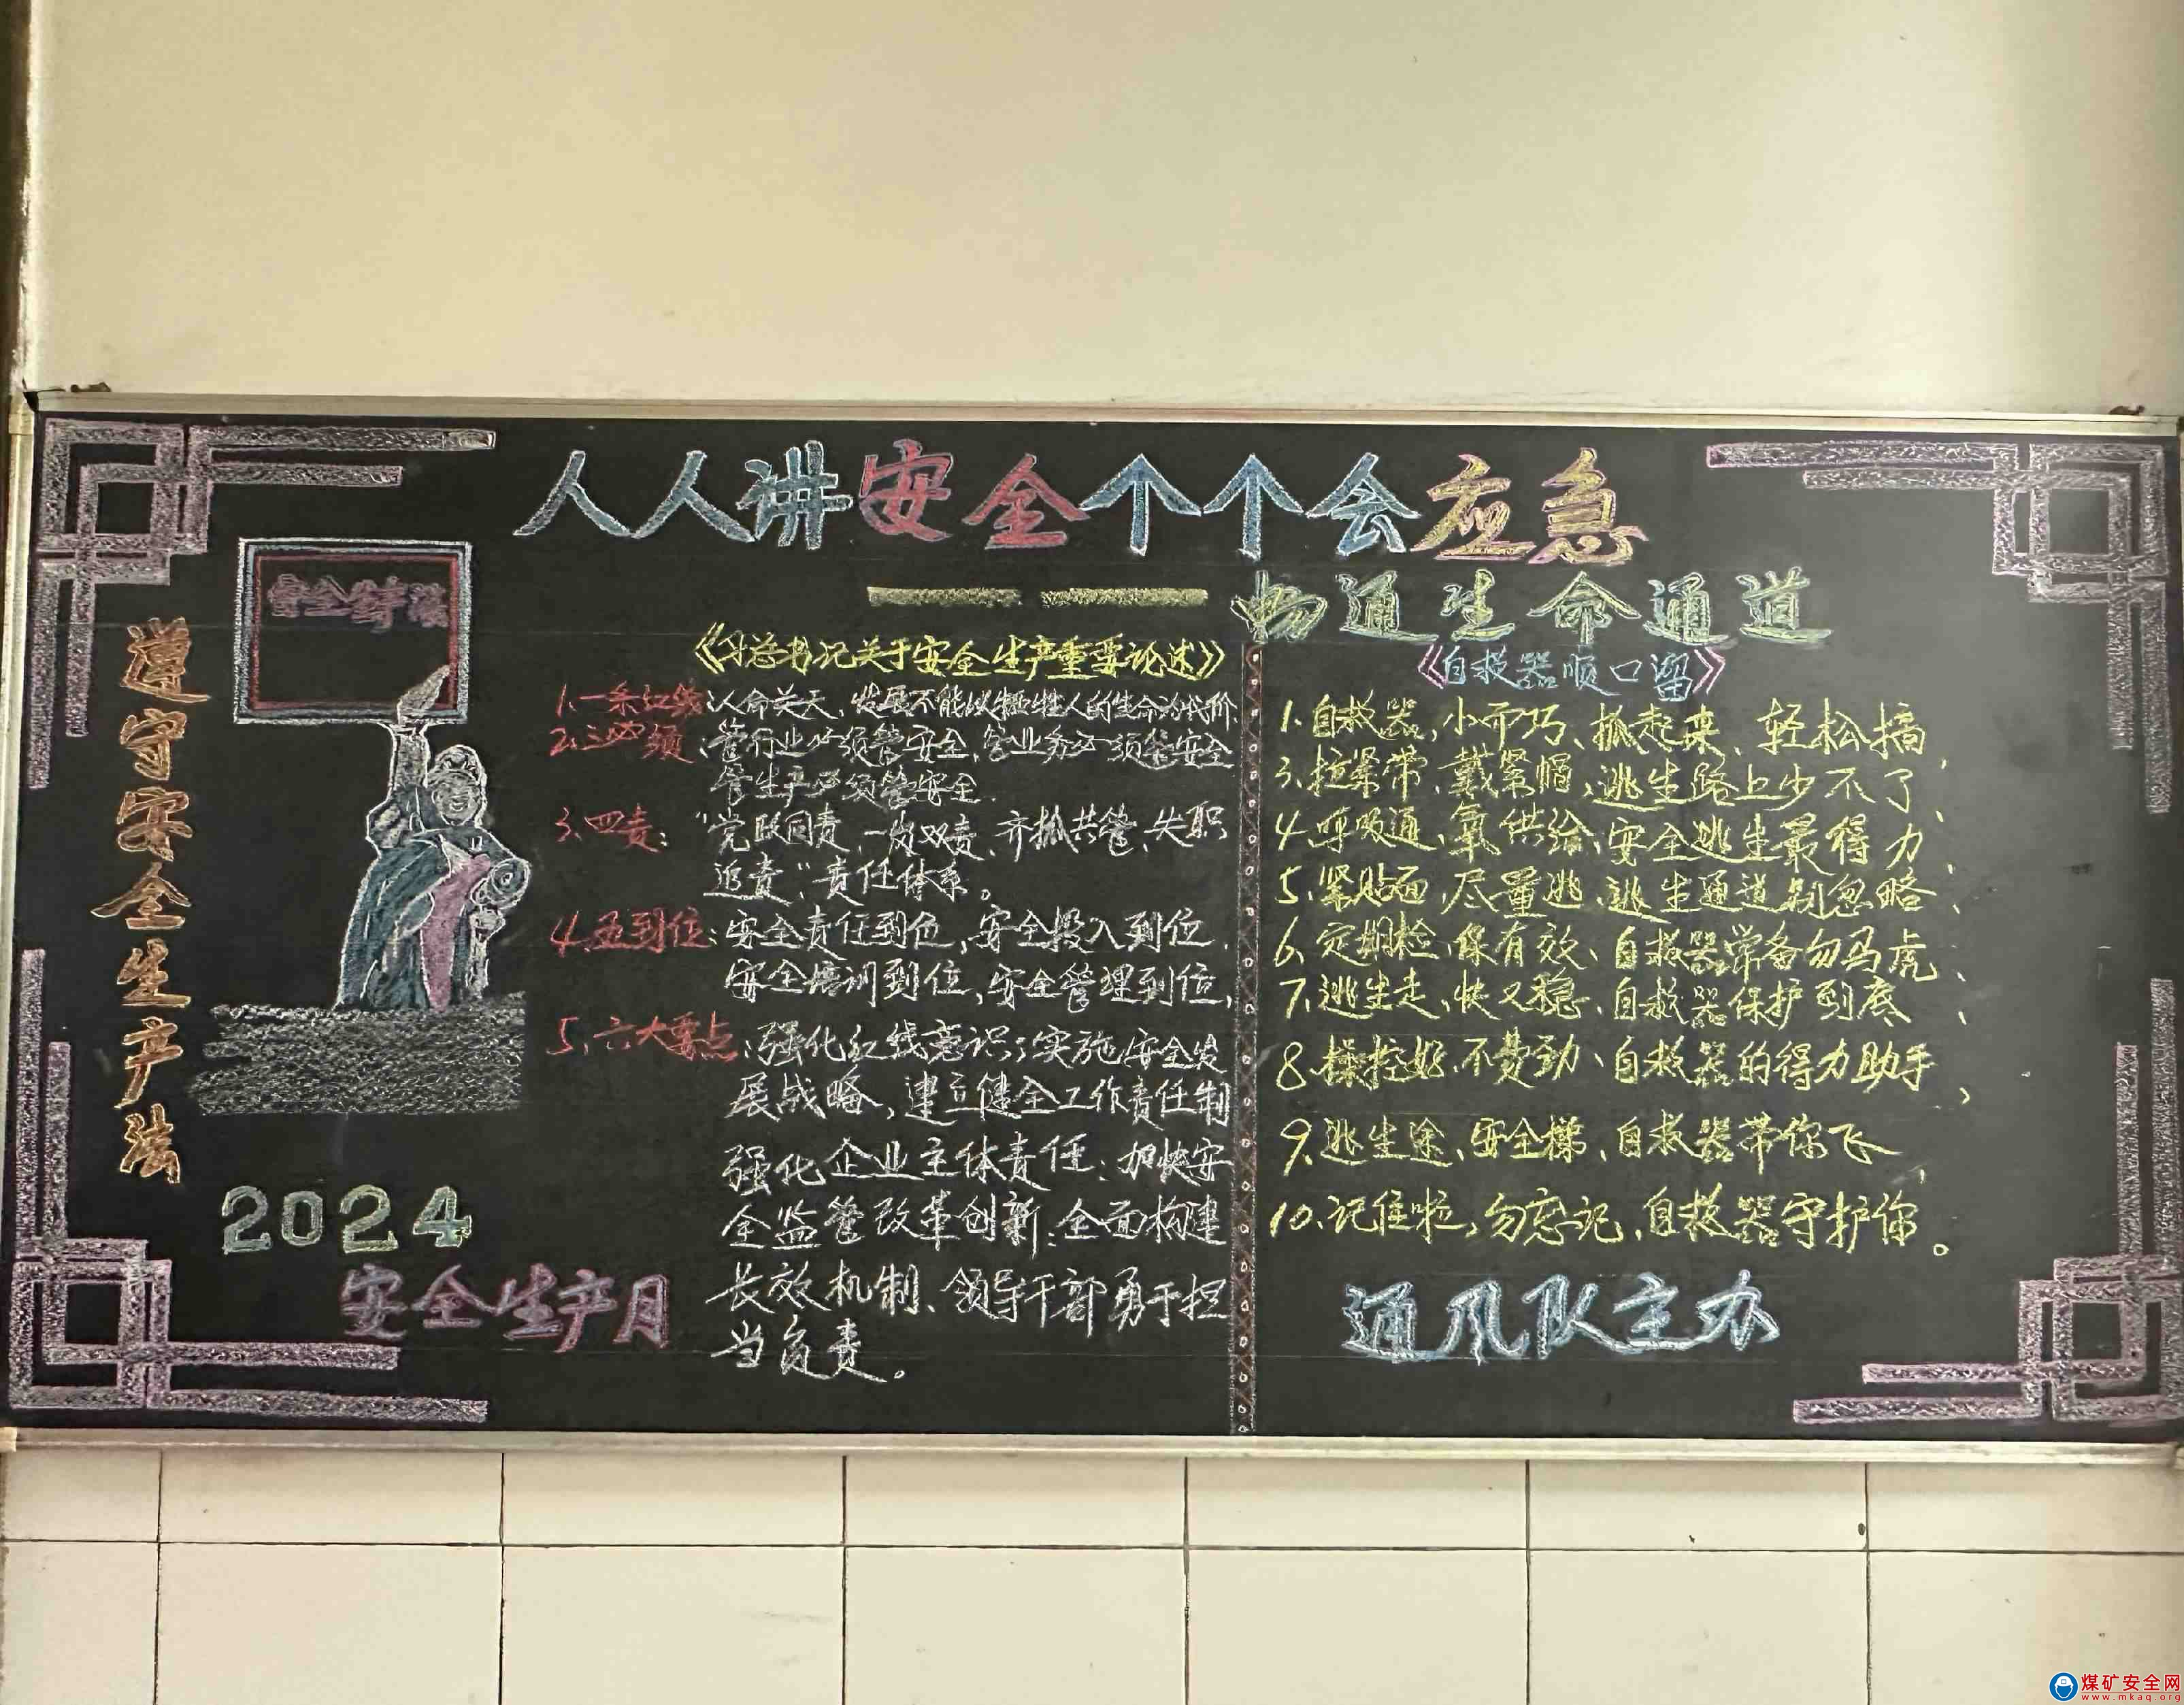 人人讲安全个个会应急
畅通生命通道
安全生产法
遵守安全生产法
2024
安全生产月
《习总书记关于安全生产重要论述》
1.一条红线:人命关天、发展不能以牺牲人的生命为代价.
2.三必须:管行业必须管安全、管业务必须管安全
管生产必须管安全.
3.四责:“党政同责、一岗双责、齐抓共管、失职
追责”,责任体系。
4.五到位:安全责任到位,安全投入到位.
安全培训到位,安全管理到位,
5.六大要点:强化红线意识;实施安全发
展战略,建立健全工作责任制
强化企业主体责任;加快安
全监管改革创新;全面构建
长效机制、领导干部勇于担
当负责。
《自救器顺口溜》
1.自救器,小而巧、抓起来、轻松搞,
3.拉紧带、戴紧帽,逃生路上少不了、
4.呼吸通、氧供给、安全逃生最得力、
5.紧贴面,尽量逃、逃生通道别忽略、
6.定期检、保有效、自救器常备勿马虎、
7.逃生走、快又稳、自救器保护到底、
8.操控好、不费劲、自救器的得力助手、
9.逃生途、安全梯、自救器带你飞,
10.记住啦,勿忘记,自救器守护你。
通风队主办
煤矿安全网
www.mkaq.org